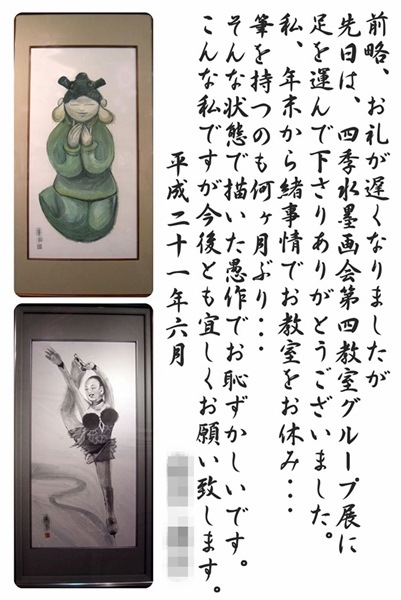 前略、お礼が遅くなりましたが
先日は、四季水墨画会第四教室グループ展に
足を運んで下さりありがとうございました。
私、年末から緒事情でお教室をお休み・・・
筆を持つのも何ヶ月ぶり・・・
そんな状態で描いた愚作でお恥ずかしいです。
こんな私ですが今後とも宜しくお願い致します。
平成二十一年六月